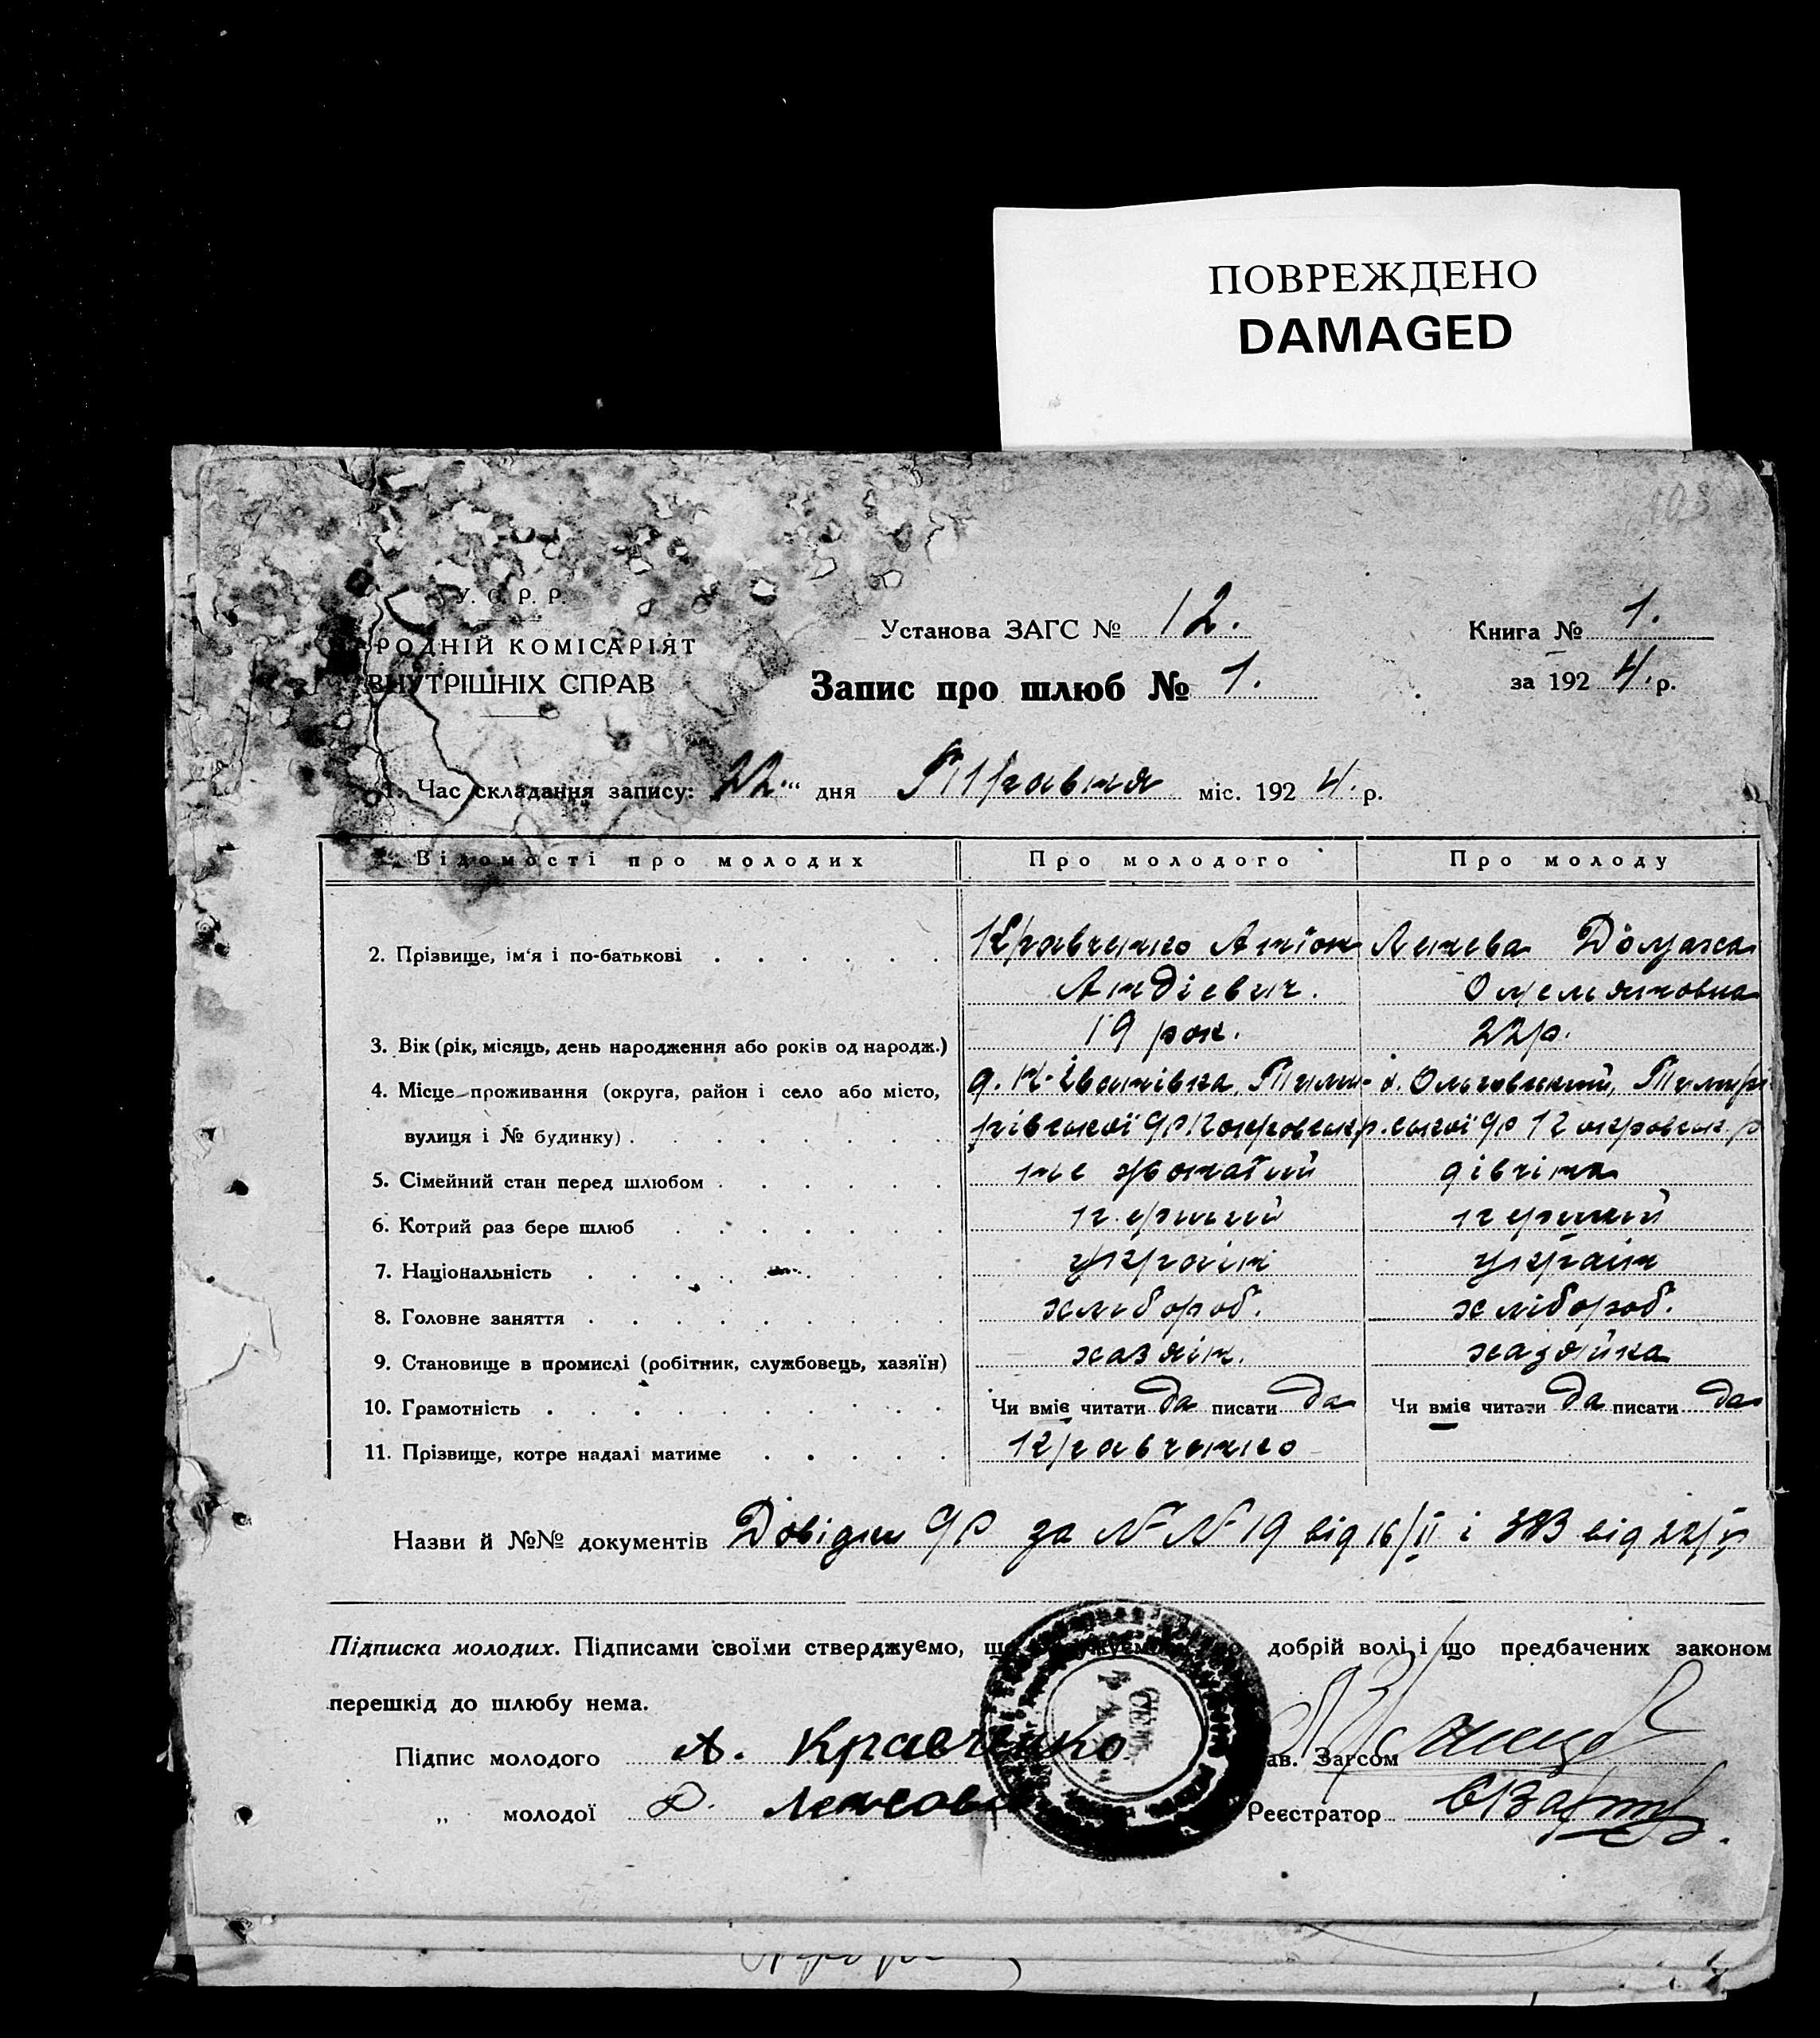 ПОВРЕЖДЕНО
DAMAGED
108
У. С. Р. Р.
РОДНІЙ КОМІСАРІЯТ
ВНУТРІШНІХ СПРАВ
Установа ЗАГС № 12.
Книга № 1.
Запис про шлюб № 1.
за 1924. р.
1. Час складання запису: 22 дня Травня міс. 1924. р.
Відомості про молодих Про молодого Про молоду
2. Прізвище, ім'я і по-батькові Кравченко Антон Домаха
Андієвич. Омеляновна
3. Вік (рік, місяць, день народження або років од народж.) 19 рок. 22 р.
4. Місце проживання (округа, район і село або місто, Іванівка,
вулиця і № будинку)
5. Сімейний стан перед шлюбом не жонатий дівчіна
6. Котрий раз бере шлюб первий первий
7. Національність україн україн
8. Головне заняття хлібороб. хлібороб.
9. Становище в промислі (робітник, службовець, хазяїн) хазяін. хазяйка
10. Грамотність Чи вміє читати да писати да Чи вміє читати да писати да
11. Прізвище, котре надалі матиме Кравченко
Назви й №№ документів Довідки за №№ 19 від 16/II і 383 від 22/V
Підписка молодих. Підписами своїми стверджуємо, що добрій волі і що предбачених законом
перешкід до шлюбу нема.
Підпис молодого А. Кравченко
ав. Загсом
„ молодої Д.
Реєстратор